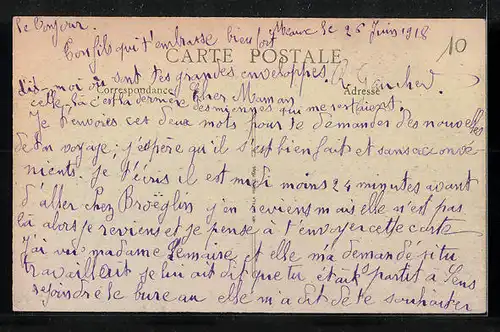 le bonjour.
Ton fils qui t'embrasse bien fort
Meaux le 26 Juin 1918
10
CARTE POSTALE
dis-moi où sont tes grandes enveloppes.
Correspondance
Adresse
celle là c'est la dernière des miennes qui me restaient.
Chère Maman
Je t'envoies ces deux mots pour te demander des nouvelles
de ton voyage, j'espère qu'il s'est bien fait et sans inconvé-
nients. Je t'écris il est midi moins 24 minutes avant
d'aller chez Broëglin j'en reviens mais elle n'est pas
là alors je reviens et je pense à t'envoyer cette carte
J'ai vu madame Lemaise et elle m'a demandé si tu
travaillait je lui ait dit que tu était partis à Sens
rejoindre le bureau elle m'a dit de te souhaiter